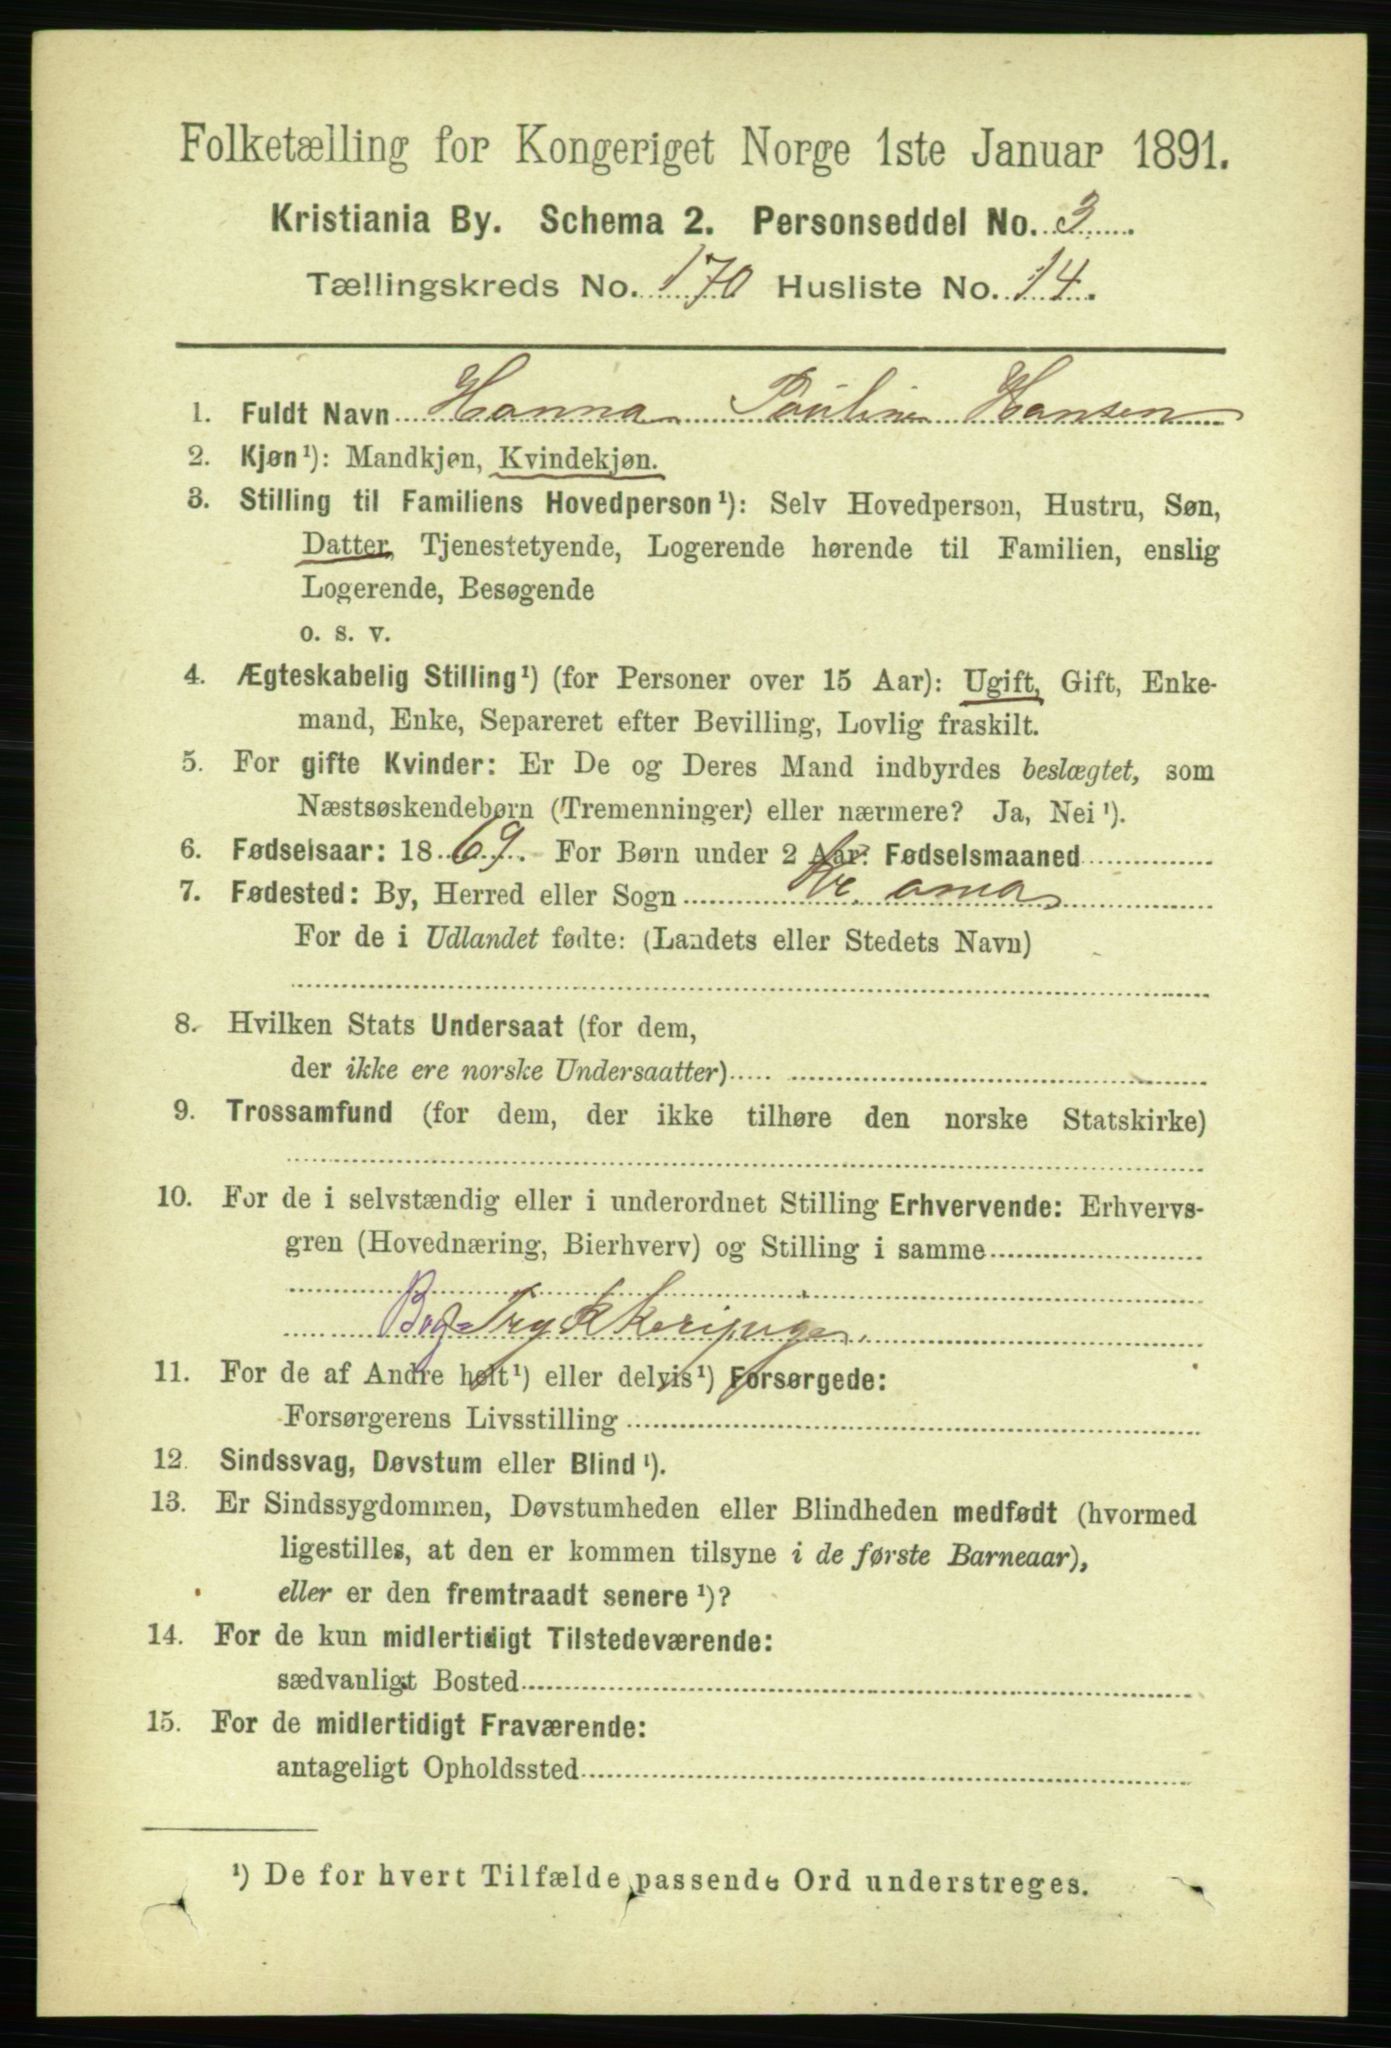 Folketælling for Kongeriget Norge 1ste Januar 1891.
Kristiania By. Schema 2. Personseddel No. 3.
Tællingskreds No. 170 Husliste No. 14.
1. Fuldt Navn Hanna Pauline Hansen
2. Kjøn¹): Mandkjøn, Kvindekjøn.
3. Stilling til Familiens Hovedperson¹): Selv Hovedperson, Hustru, Søn,
Datter, Tjenestetyende, Logerende hørende til Familien, enslig
Logerende, Besøgende
o. s. v.
4. Ægteskabelig Stilling¹) (for Personer over 15 Aar): Ugift, Gift, Enke-
mand, Enke, Separeret efter Bevilling, Lovlig fraskilt.
5. For gifte Kvinder: Er De og Deres Mand indbyrdes beslægtet, som
Næstsøskendebørn (Tremenninger) eller nærmere? Ja, Nei¹).
6. Fødselsaar: 1869. For Børn under 2 Aar: Fødselsmaaned
7. Fødested: By, Herred eller Sogn
For de i Udlandet fødte: (Landets eller Stedets Navn)
8. Hvilken Stats Undersaat (for dem,
der ikke ere norske Undersaatter)
9. Trossamfund (for dem, der ikke tilhøre den norske Statskirke)
10. For de i selvstændig eller i underordnet Stilling Erhvervende: Erhvervs-
gren (Hovednæring, Bierhverv) og Stilling i samme
Bog-Trykkeripige
11. For de af Andre helt¹) eller delvis¹) Forsørgede:
Forsørgerens Livsstilling
12. Sindssvag, Døvstum eller Blind¹).
13. Er Sindssygdommen, Døvstumheden eller Blindheden medfødt (hvormed
ligestilles, at den er kommen tilsyne i de første Barneaar),
eller er den fremtraadt senere¹)?
14. For de kun midlertidigt Tilstedeværende:
sædvanligt Bosted
15. For de midlertidigt Fraværende:
antageligt Opholdssted
¹) De for hvert Tilfælde passende Ord understreges.